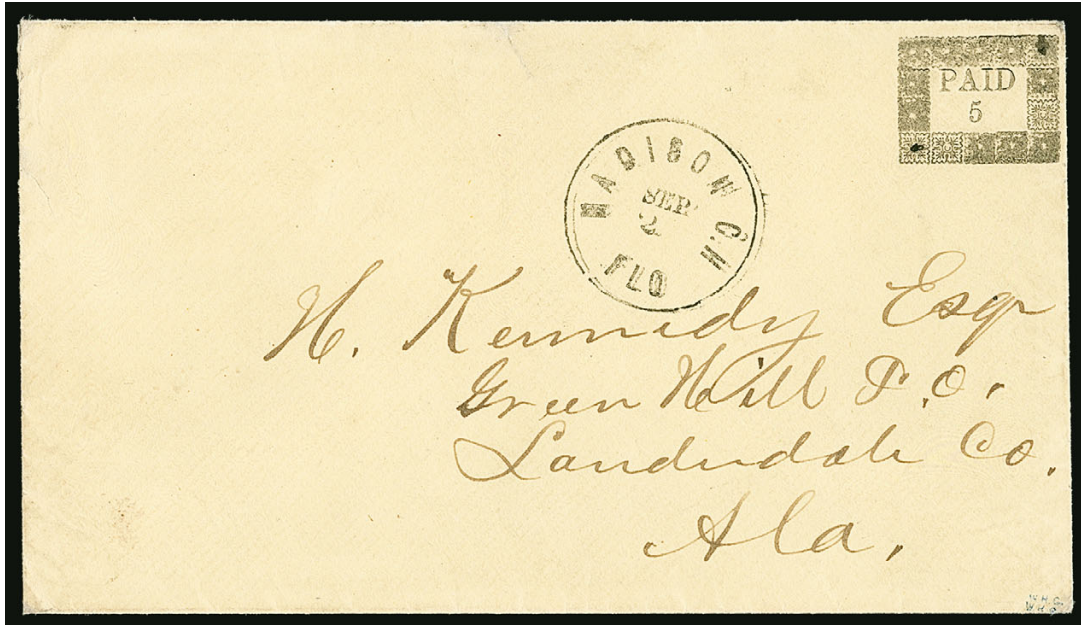 PAID
5
MADISON C.H
SEP
2
FLO
H. Kennedy Esqr
Green Hill P.O.
Landudale Co.
Ala.
W.H.C.